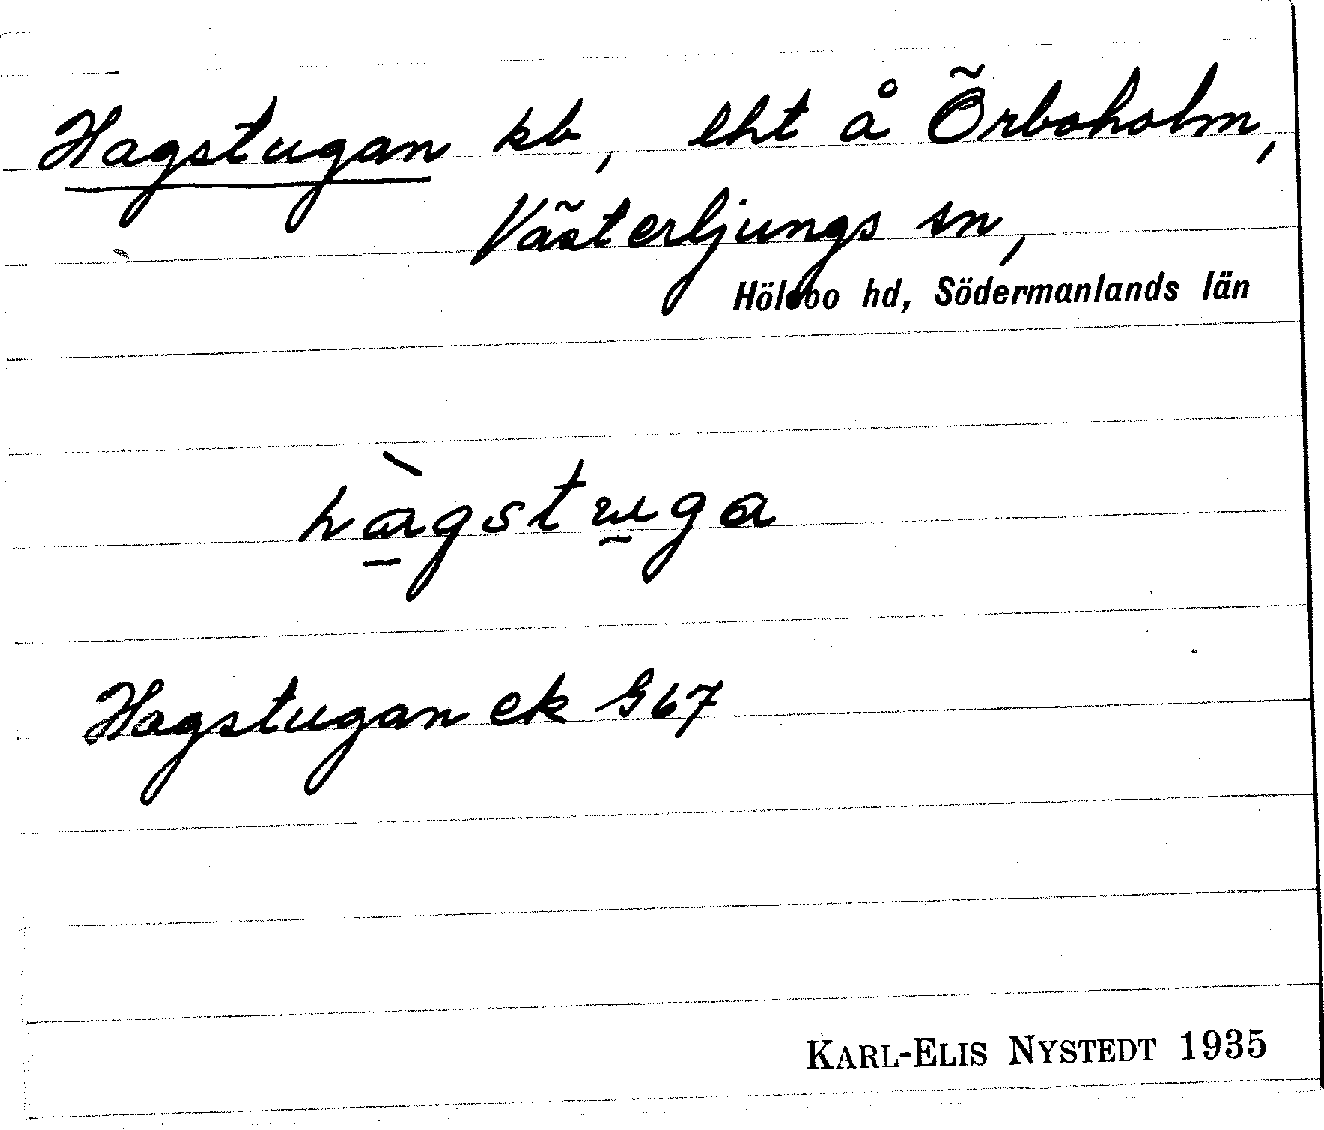 Hagstugan kb, lht å Örboholm,
Västerljungs sn,
Hölebo hd, Södermanlands län
hàgstuga
Hagstugan ek G67
KARL-ELIS NYSTEDT 1935